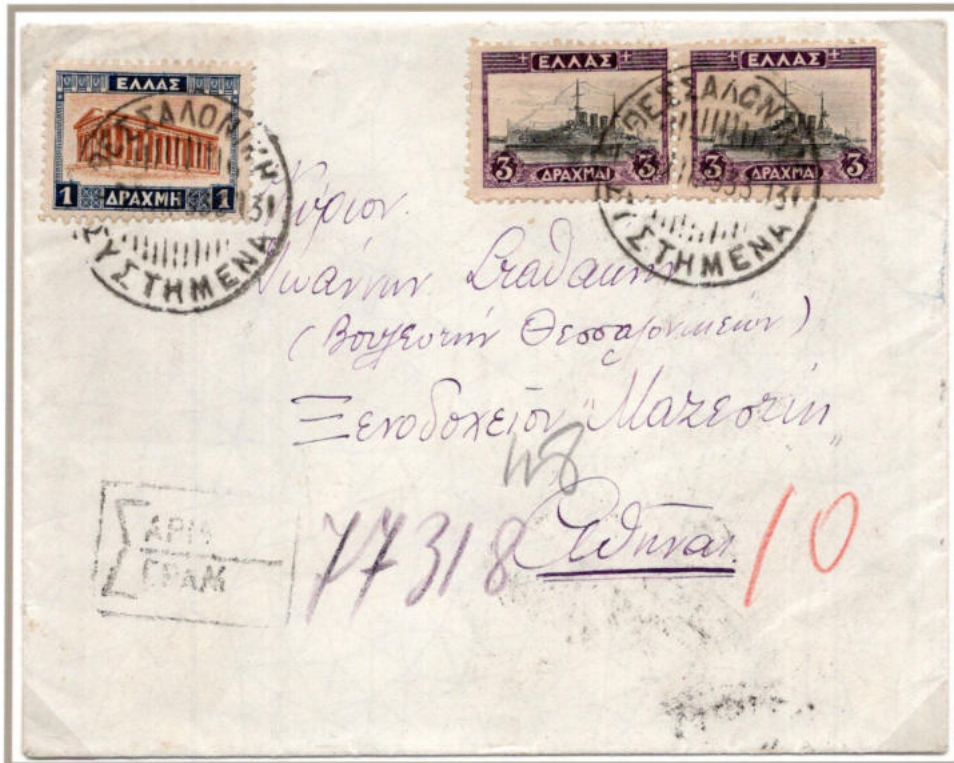 ΕΛΛΑΣ
1 ΔΡΑΧΜΗ 1
ΘΕΣΣΑΛΟΝΙΚΗ
ΣΥΣΤΗΜΕΝΑ
ΕΛΛΑΣ
3 ΔΡΑΧΜΑΙ 3
ΕΛΛΑΣ
3 ΔΡΑΧΜΑΙ 3
ΘΕΣΣΑΛΟΝΙΚΗ
ΣΥΣΤΗΜΕΝΑ
Κύριον
Ιωάννην Σταθάκην
(Βουλευτήν Θεσσαλονικέων)
Ξενοδοχείον „Μαζεστίκ"
Αθήνας
Σ ΑΡΙΘ
ΓΡΑΜ
77318
10